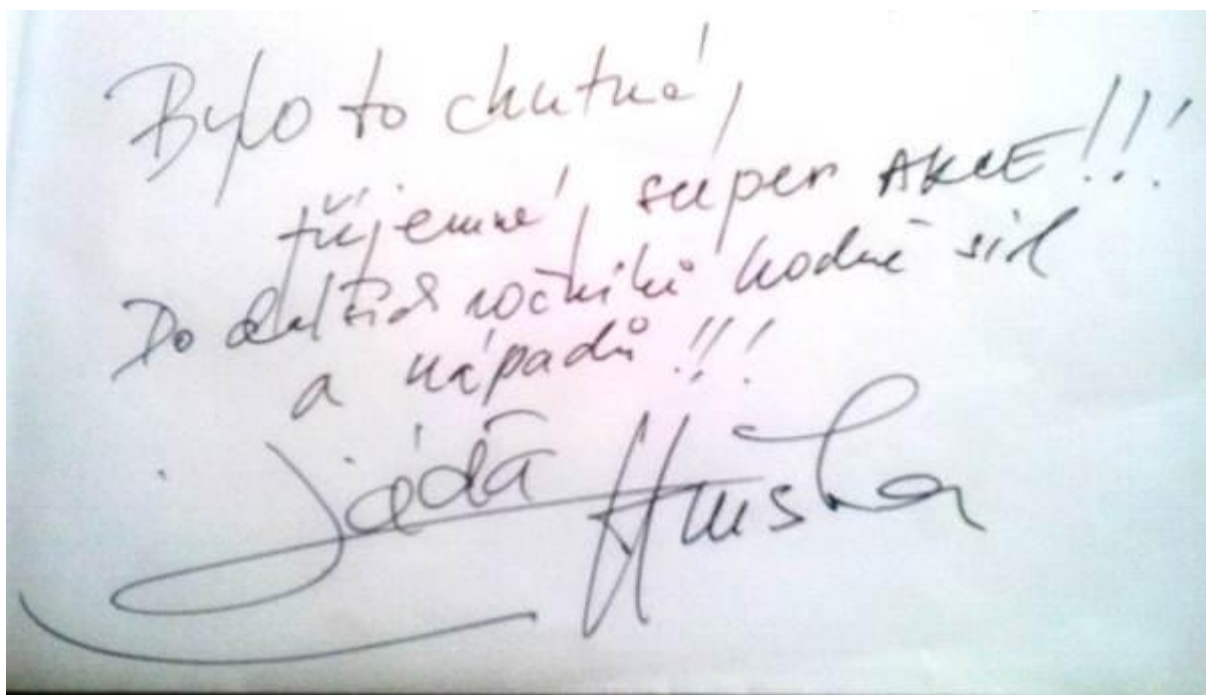 Bylo to chutné,
příjemné, super AKCE!!!
Do dalších ročníků hodně sil
a nápadů!!!
Jáďa Huska